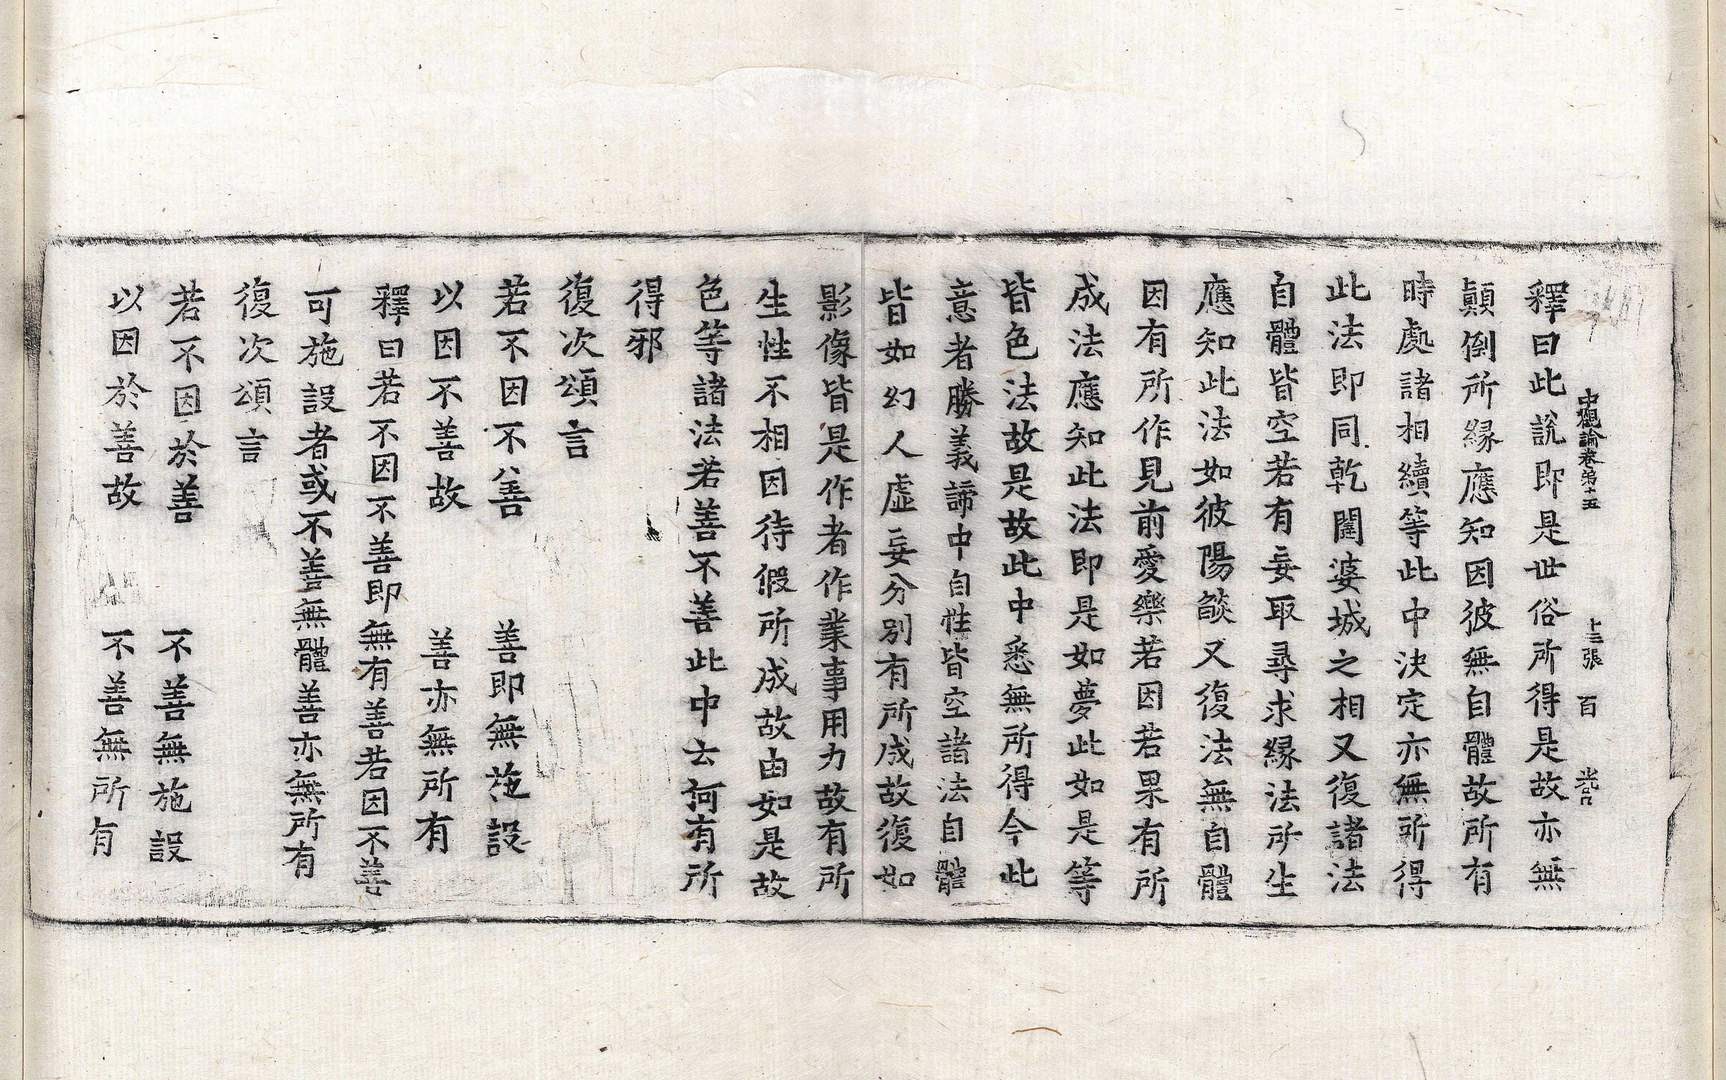 中觀論卷第十五 卜三張 百
釋曰此說即是世俗所得是故亦無
顚倒所緣應知因彼無自體故所有
時處諸相續等此中決定亦無所得
此法即同乾闥婆城之相又復諸法
自體皆空若有妄取尋求緣法所生
應知此法如彼陽燄又復法無自體
因有所作見前愛樂若因若果有所
成法應知此法即是如夢此如是等
皆色法故是故此中悉無所得今此
意者勝義諦中自性皆空諸法自體
皆如幻人虛妄分別有所成故復如
影像皆是作者作業事用力故有所
生性不相因待假所成故由如是故
色等諸法若善不善此中云何有所
得邪
復次頌言
若不因不善 善即無施設
以因不善故 善亦無所有
釋曰若不因不善即無有善若因不善
可施設者或不善無體善亦無所有
復次頌言
若不因於善 不善無施設
以因於善故 不善無所有